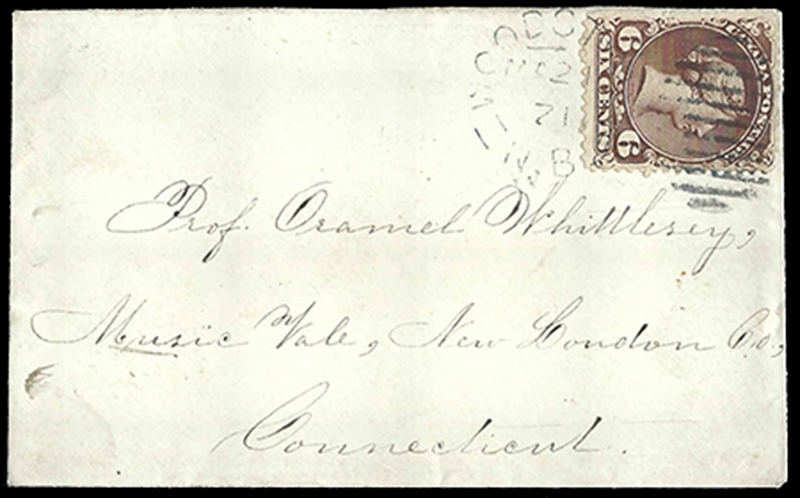 CANADA POSTAGE
6 6
SIX CENTS
12
71
N.B
Prof. Oramel Whittlesey,
Music Vale, New London Co.,
Connecticut.